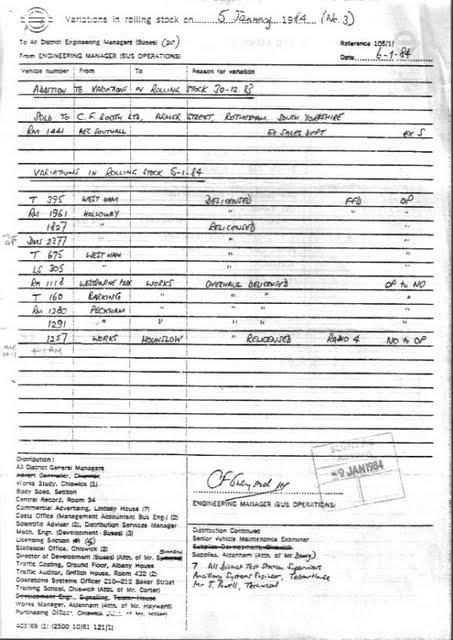 Variations in rolling stock on 5 January 1984 (No. 3)
To All District Engineering Managers (Buses) (20)
Reference 105/1/
From ENGINEERING MANAGER (BUS OPERATIONS)
Date 6-1-84
Vehicle number From To Reason for variation
ADDITION TO VARIATIONS IN ROLLING STOCK 30-12-83
SOLD TO C.F. BOOTH LTD, ARMER STREET, ROTHERHAM, SOUTH YORKSHIRE
RM 1441 AEC SOUTHALL EX SALES DEPT EX S
VARIATIONS IN ROLLING STOCK 5-1-84
T 395 WEST HAM DELICENSED FFD OP
RM 1961 HOLLOWAY " " "
1827 " RELICENSED "
DMS 2377 " "
T 675 WEST HAM " "
LS 305 " " "
RM 1118 WESTBOURNE PARK WORKS OVERHAUL DELICENSED OP to NO
T 160 BARKING " " " "
RM 1280 PECKHAM " " " "
1291 " " " " "
1257 WORKS HOUNSLOW " RELICENSED RADIO 4 NO to OP
SCIENTIFIC
-9 JAN 1984
ENGINEERING MANAGER (BUS OPERATIONS)
Distribution:
All District General Managers
Advert Controller, Chiswick
Works Study, Chiswick (1)
Body Spec. Section
Central Record, Room 34
Commercial Advertising, Lindsey House (7)
Costs Office (Management Accountant Bus Eng.) (2)
Scientific Adviser (2), Distribution Services Manager
Mech. Engr. (Development - Buses) (3)
Licensing Section (5)
Statistical Office, Chiswick (2)
Director of Development (Buses) (Attn. of Mr. SIMON)
Traffic Costing, Ground Floor, Albany House
Traffic Auditor, Griffith House, Room 432 (2)
Operations Systems Officer 210–212 Baker Street
Training School, Chiswick (Attn. of Mr. Carter)
Development Engr., Signalling, Telstar House
Works Manager, Aldenham (Attn. of Mr. Hayward)
Purchasing Officer, Chiswick (Attn. of Mr. Hilton)
A03789 (1) (2500 10/81 121/1)
Distribution Continued
Senior Vehicle Maintenance Examiner
Supplies Department, Chiswick
Supplies, Aldenham (Attn. of Mr.
7 All District Test Station Supervisors
Ancillary Systems Engineer, Telstar House
Mr T. Powell, Technical